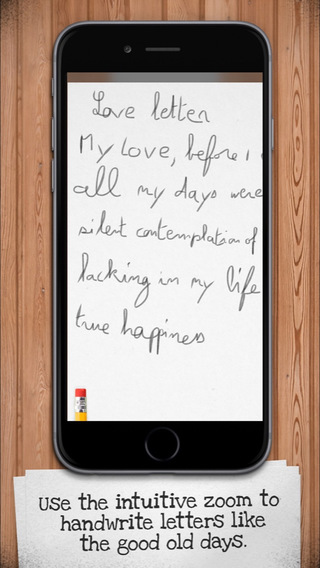 Love letter
My Love, before I
all my days were
silent contemplation of
lacking in my life
true happiness
Use the intuitive zoom to
handwrite letters like
the good old days.